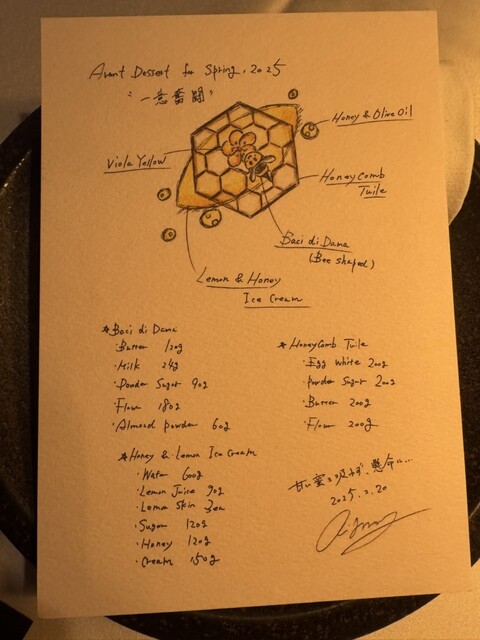 Avant Dessert for Spring, 2025
"一意奮闘"
Honey & Olive Oil
Viola Yellow
Honeycomb
Tuile
Baci di Dama
(Bee shaped)
Lemon & Honey
Ice Cream
★Baci di Dama
・Butter 120g
・Milk 24g
・Powder Sugar 90g
・Flour 180g
・Almond powder 60g
★Honeycomb Tuile
・Egg white 200g
・Powder Sugar 200g
・Butter 200g
・Flour 200g
★Honey & Lemon Ice Cream
・Water 600g
・Lemon Juice 90g
・Lemon Skin 3ea
・Sugar 120g
・Honey 120g
・Cream 150g
甘い蜜を吸わず、懸命に...
2025.2.20